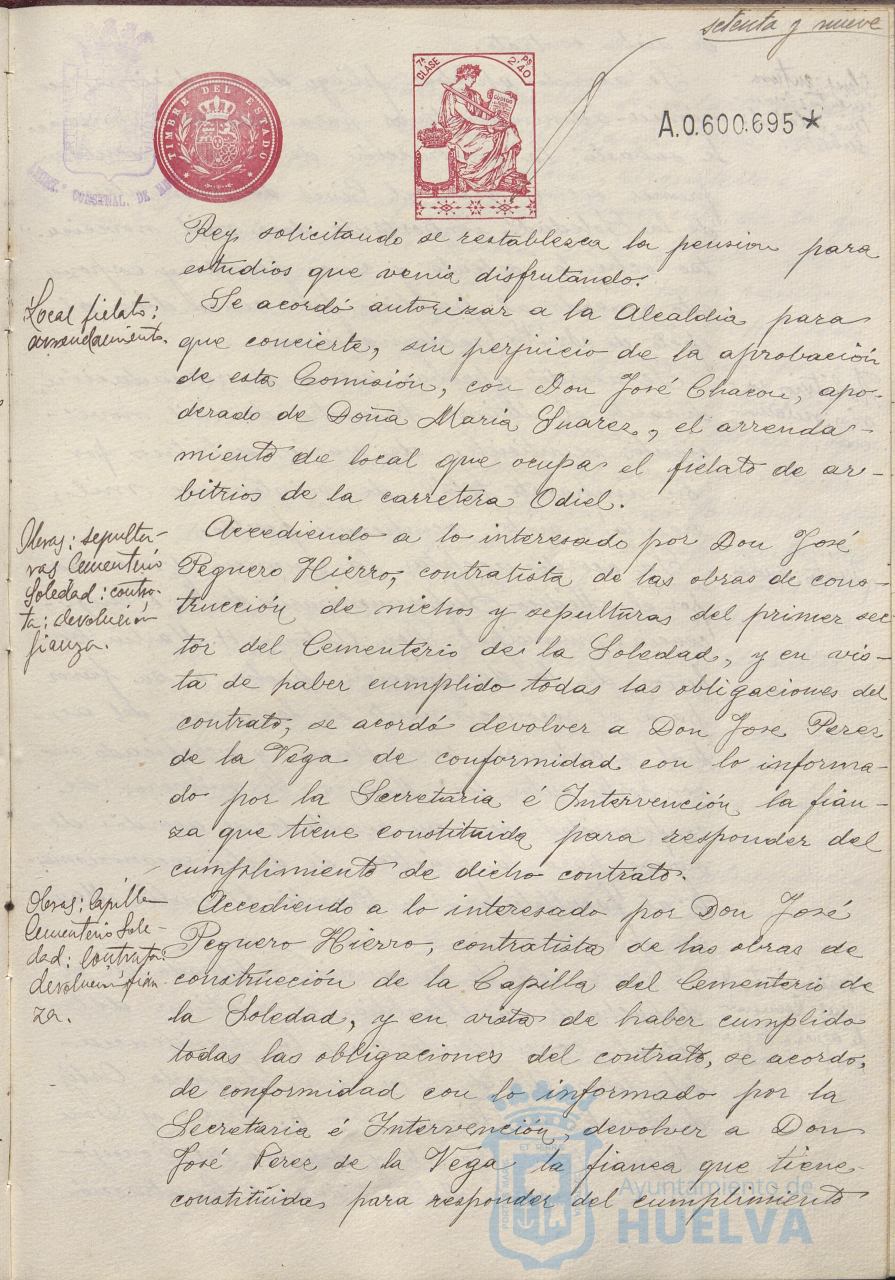 setenta y nueve
TIMBRE DEL ESTADO
7ª CLASE
Ps 2'40
A.0.600.695*
Rey solicitando se restablezca la pension para
estudios que venia disfrutando.
Local fielato:
arrendamiento.
Se acordó autorizar a la Alcaldia para
que concierte, sin perjuicio de la aprobación
de esta Comisión, con Don José Chacon, apo-
derado de Doña Maria Suarez, el arrenda-
miento de local que ocupa el fielato de ar-
bitrios de la carretera Odiel.
Obras: sepultu-
ras Cementerio
Soledad: contra-
ta: devolución
fianza.
Accediendo a lo interesado por Don José
Peguero Hierro, contratista de las obras de cons-
trucción de nichos y sepulturas del primer sec-
tor del Cementerio de la Soledad, y en vis-
ta de haber cumplido todas las obligaciones del
contrato, se acordó devolver a Don Jose Perez
de la Vega de conformidad con lo informa-
do por la Secretaria é Intervención la fian-
za que tiene constituida para responder del
cumplimiento de dicho contrato.
Obras: Capilla
Cementerio Sole-
dad: Contrata:
devolución fian-
za.
Accediendo a lo interesado por Don José
Peguero Hierro, contratista de las obras de
construcción de la Capilla del Cementerio de
la Soledad, y en vista de haber cumplido
todas las obligaciones del contrato, se acordo,
de conformidad con lo informado por la
Secretaria é Intervención, devolver a Don
José Perez de la Vega la fianza que tiene
constituida para responder del cumplimiento
Ayuntamiento de
HUELVA